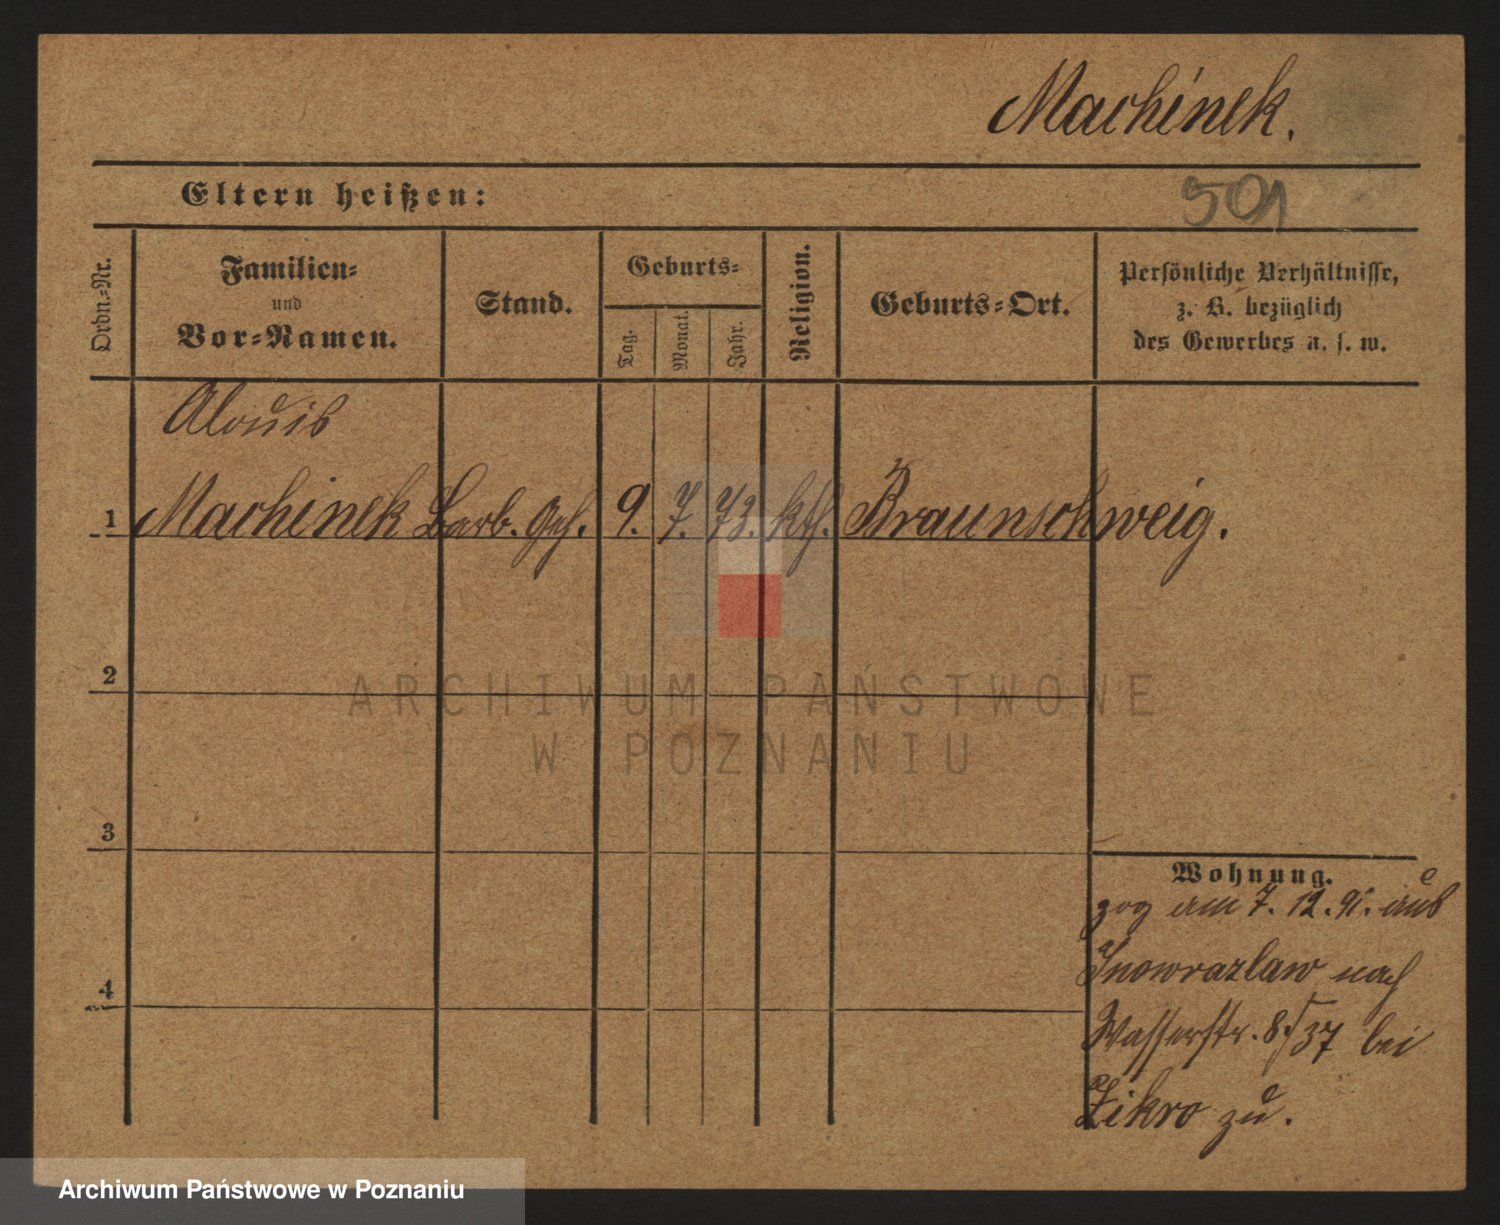 Machinek.
Eltern heißen:
501
Ordn.-Nr.
Familien-
und
Vor-Namen.
Stand.
Geburts-
Tag.
Monat.
Jahr.
Religion.
Geburts-Ort.
Persönliche Verhältnisse,
z. B. bezüglich
des Gewerbes u. s. w.
Alouis
1 Machinek Barb. Geh. 9. 7. 73. kth. Braunschweig.
2
3
4
Wohnung.
zog am 7. 12. 91. aus
Inowrazlaw nach
Wasserstr. 8/37 bei
Zikro zu.
ARCHIWUM PAŃSTWOWE
W POZNANIU
Archiwum Państwowe w Poznaniu